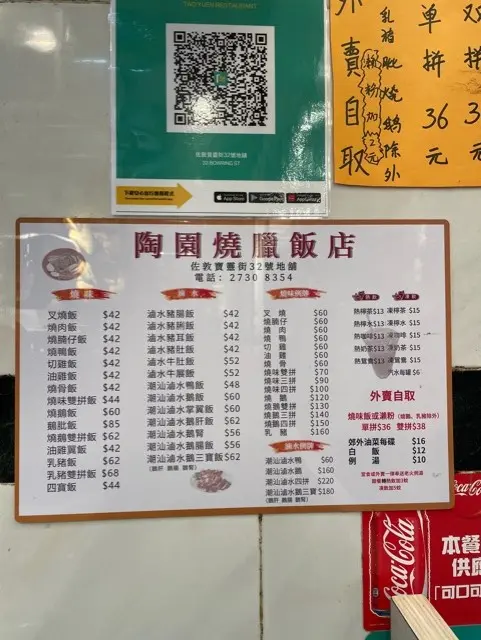 TAO YUEN RESTAURANT
佐敦寶靈街32號地舖
32 BOWRING ST
App Store
Google Play
AppGallery
外賣自取
乳豬
髀
燒鵝除外
瀨粉加2元
單拼36元
双拼3
陶園燒臘飯店
佐敦寶靈街32號地舖
電話：2730 8354
燒味
叉燒飯 $42
燒肉飯 $42
燒腩仔飯 $42
燒鴨飯 $42
切雞飯 $42
油雞飯 $42
燒骨飯 $42
燒味雙拼飯 $44
燒鵝飯 $60
鵝髀飯 $85
燒鵝雙拼飯 $62
油雞翼飯 $42
乳豬飯 $62
乳豬雙拼飯 $68
四寶飯 $44
滷水
滷水豬腸飯 $42
滷水豬脷飯 $42
滷水豬耳飯 $42
滷水豬肚飯 $42
滷水牛肚飯 $52
滷水牛腱飯 $52
潮汕滷水鴨飯 $48
潮汕滷水鵝飯 $60
潮汕滷水掌翼飯 $60
潮汕滷水鵝肝飯 $62
潮汕滷水鵝腎 $56
潮汕滷水鵝腸飯 $56
潮汕滷水鵝三寶飯 $62
(鵝肝 鵝腸 鵝腎)
燒味例牌
叉燒 $60
燒腩仔 $60
燒肉 $60
燒鴨 $60
切雞 $60
油雞 $60
燒骨 $60
燒味雙拼 $70
燒味三拼 $90
燒味四拼 $100
燒鵝 $120
燒鵝雙拼 $130
燒鵝三拼 $140
燒鵝四拼 $150
乳豬 $160
滷水例牌
潮汕滷水鴨 $60
潮汕滷水鵝 $160
潮汕滷水四拼 $220
潮汕滷水鵝三寶 $180
(鵝肝 鵝腸 鵝腎)
熱飲 凍飲
熱檸茶 $13 凍檸茶 $15
熱檸水 $13 凍檸水 $15
熱咖啡 $13 凍咖啡 $15
熱奶茶 $13 凍奶茶 $15
熱鴛鴦 $13 凍鴛鴦 $15
汽水每罐 $6
外賣自取
燒味飯或瀨粉 (燒鵝、乳豬除外)
單拼$36 雙拼$38
郊外油菜每碟 $16
白飯 $12
例湯 $10
Coca-Cola
本餐
供應
「可口可